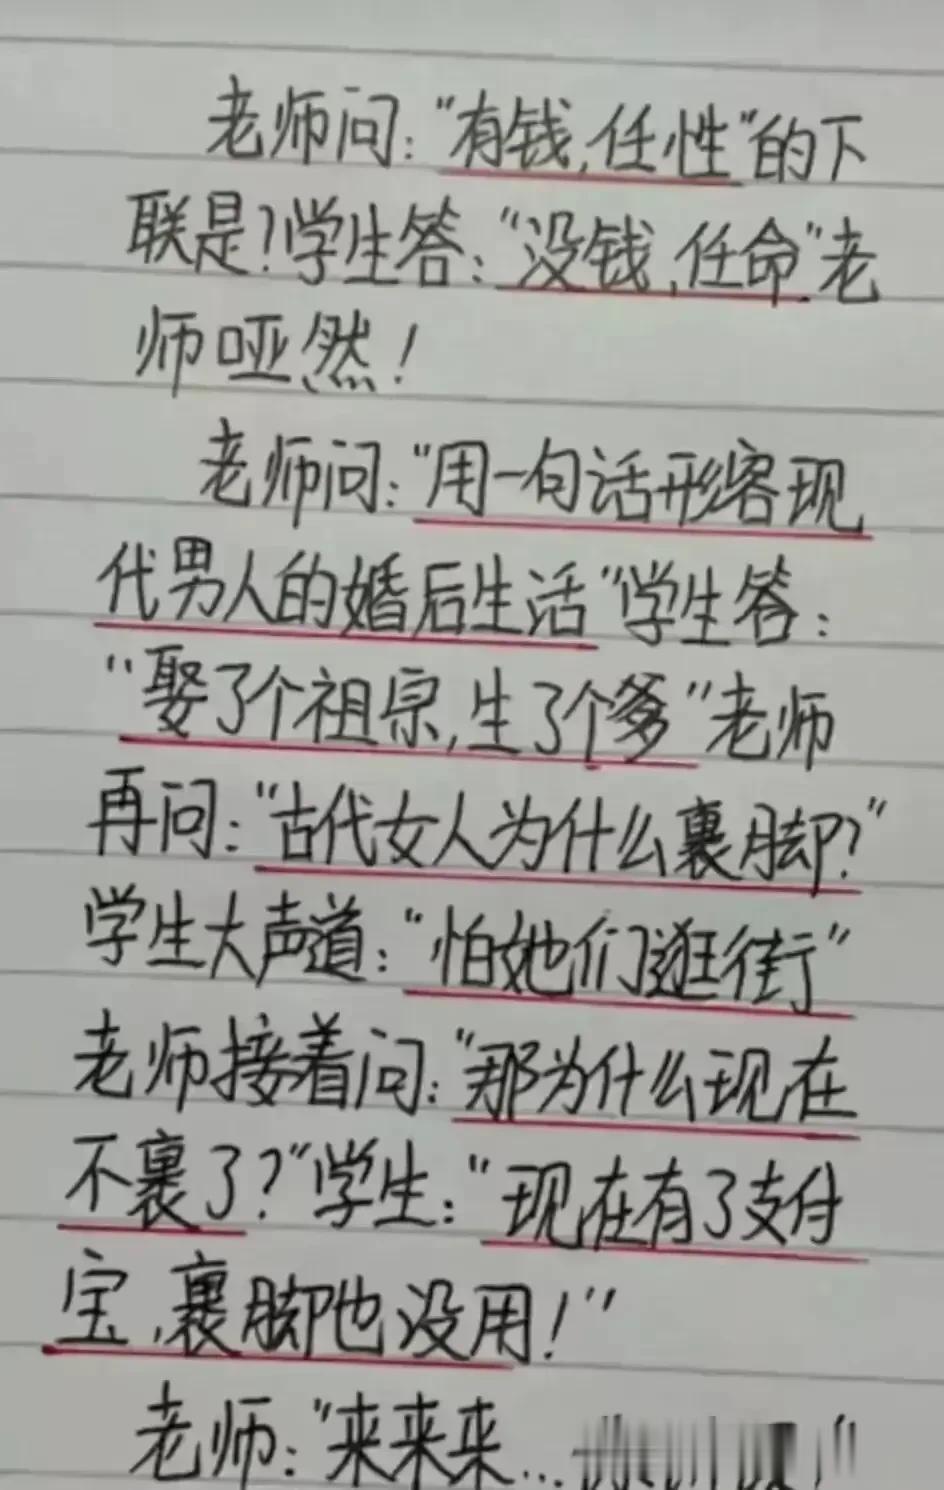 老师问:"有钱,任性"的下
联是?学生答:"没钱,任命"老
师哑然!
老师问:"用一句话形容现
代男人的婚后生活"学生答:
"娶了个祖宗,生了个爹"老师
再问:"古代女人为什么裹脚?"
学生大声道:"怕她们逛街"
老师接着问:"那为什么现在
不裹了?"学生:"现在有了支付
宝,裹脚也没用!"
老师:"来来来...